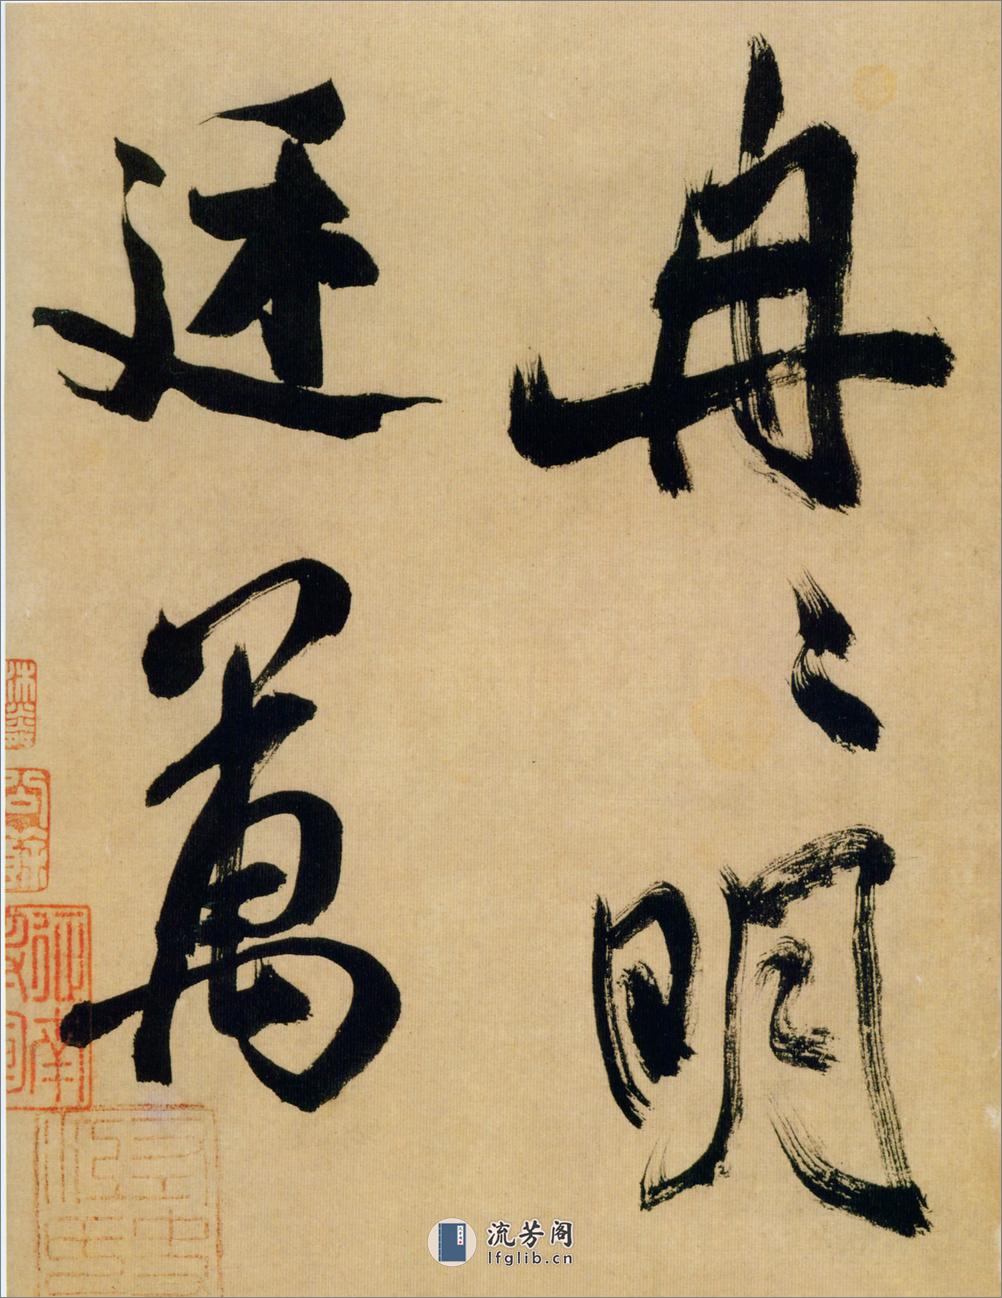 冉〻明
廷萬
流芳阁
lfglib.cn